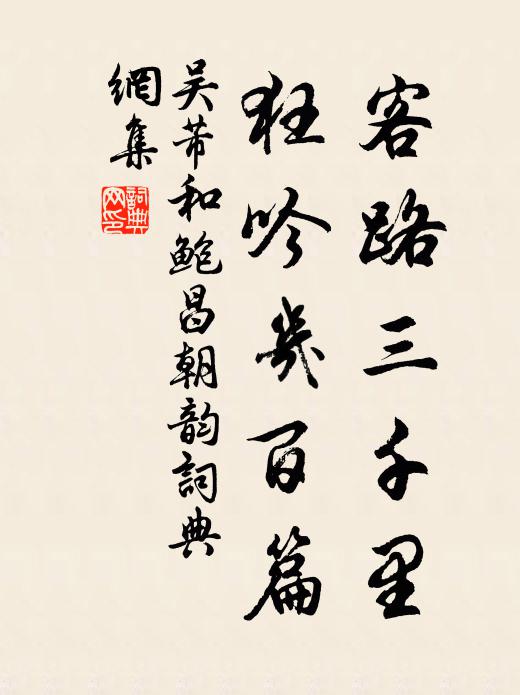 客路三千里
狂吟幾百篇
吴芾和鲍昌朝韵詞典
網集
詞典
网印